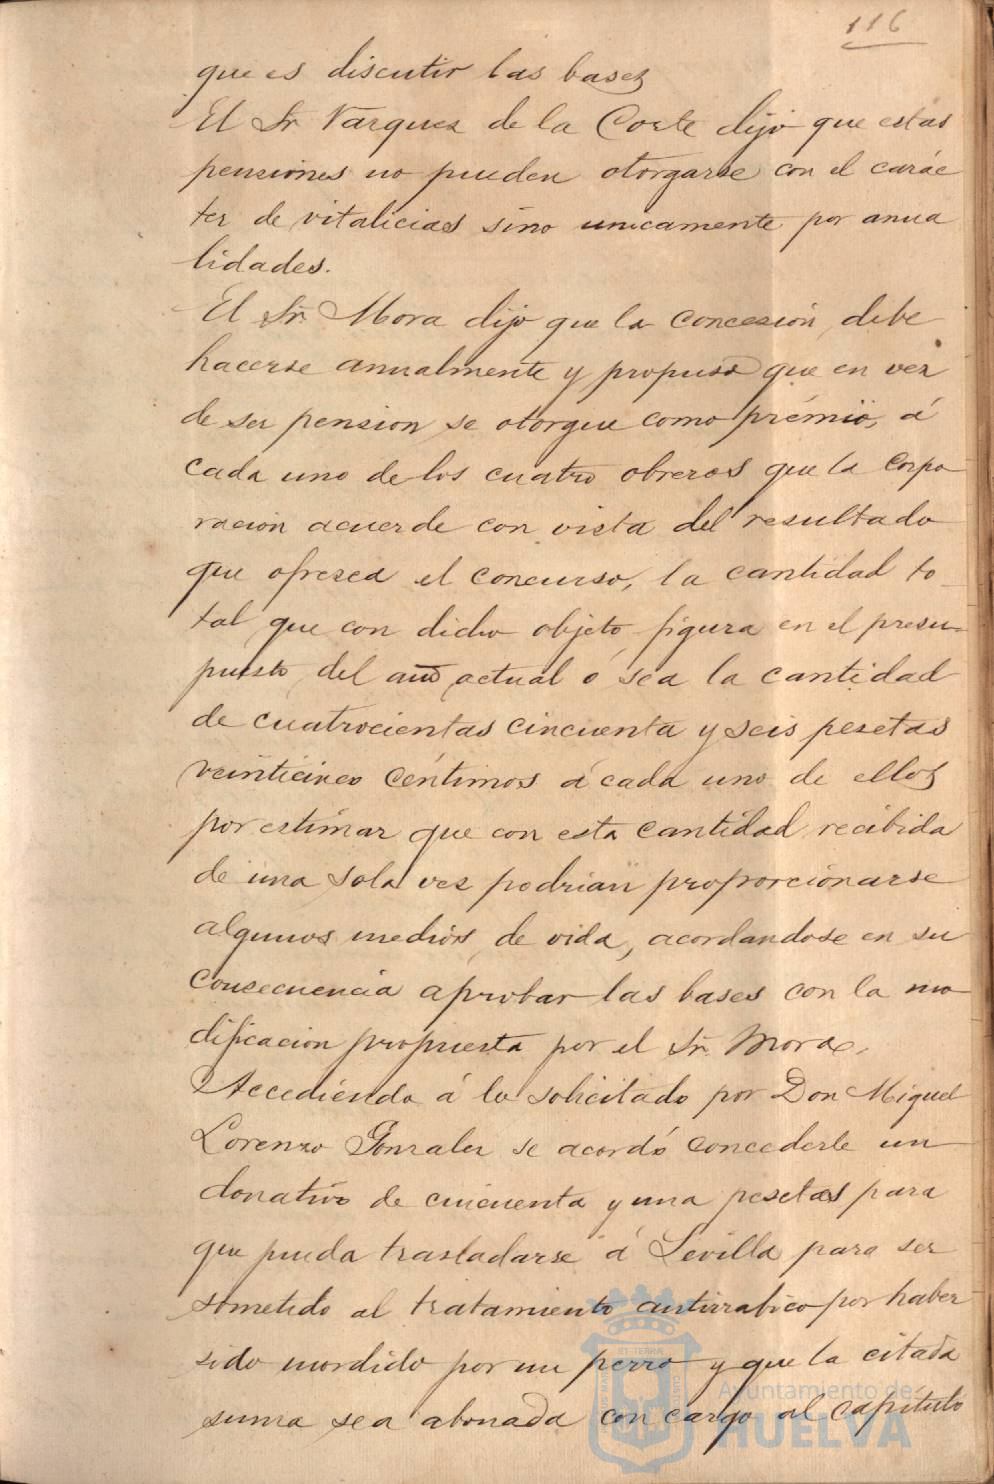 116
que es discutir las bases
El Sr. Vazquez de la Corte dijo que estas
pensiones no pueden otorgarse con el carac
ter de vitalicias sino unicamente por anua
lidades.
El Sr. Mora dijo que la concesión debe
hacerse anualmente y propuso que en vez
de ser pension se otorgue como prémio, á
cada uno de los cuatro obreros que la corpo
racion acuerde con vista del resultado
que ofrezca el concurso, la cantidad to
tal que con dicho objeto figura en el presu-
puesto del año actual ó sea la cantidad
de cuatrocientas cincuenta y seis pesetas
veinticinco céntimos á cada uno de ellos
por estimar que con esta cantidad recibida
de una sola vez podrian proporcionarse
algunos medios de vida, acordandose en su
consecuencia aprobar las bases con la mo
dificacion propuesta por el Sr. Mora.
Accediendo á lo solicitado por Don Miguel
Lorenzo Gonzalez se acordó concederle un
donativo de cincuenta y una pesetas para
que pueda trasladarse á Sevilla para ser
sometido al tratamiento antirrabico por haber
sido mordido por un perro y que la citada
suma sea abonada con cargo al capítulo
Ayuntamiento de
HUELVA